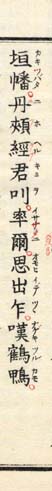 垣幡丹頰經君叫率爾思出乍嘆鶴鴨
カキツバタ ニ ホ ヘル キミ ヲ イサヽメニ オモヒ イデ ツヽ ナゲキ ツル カモ